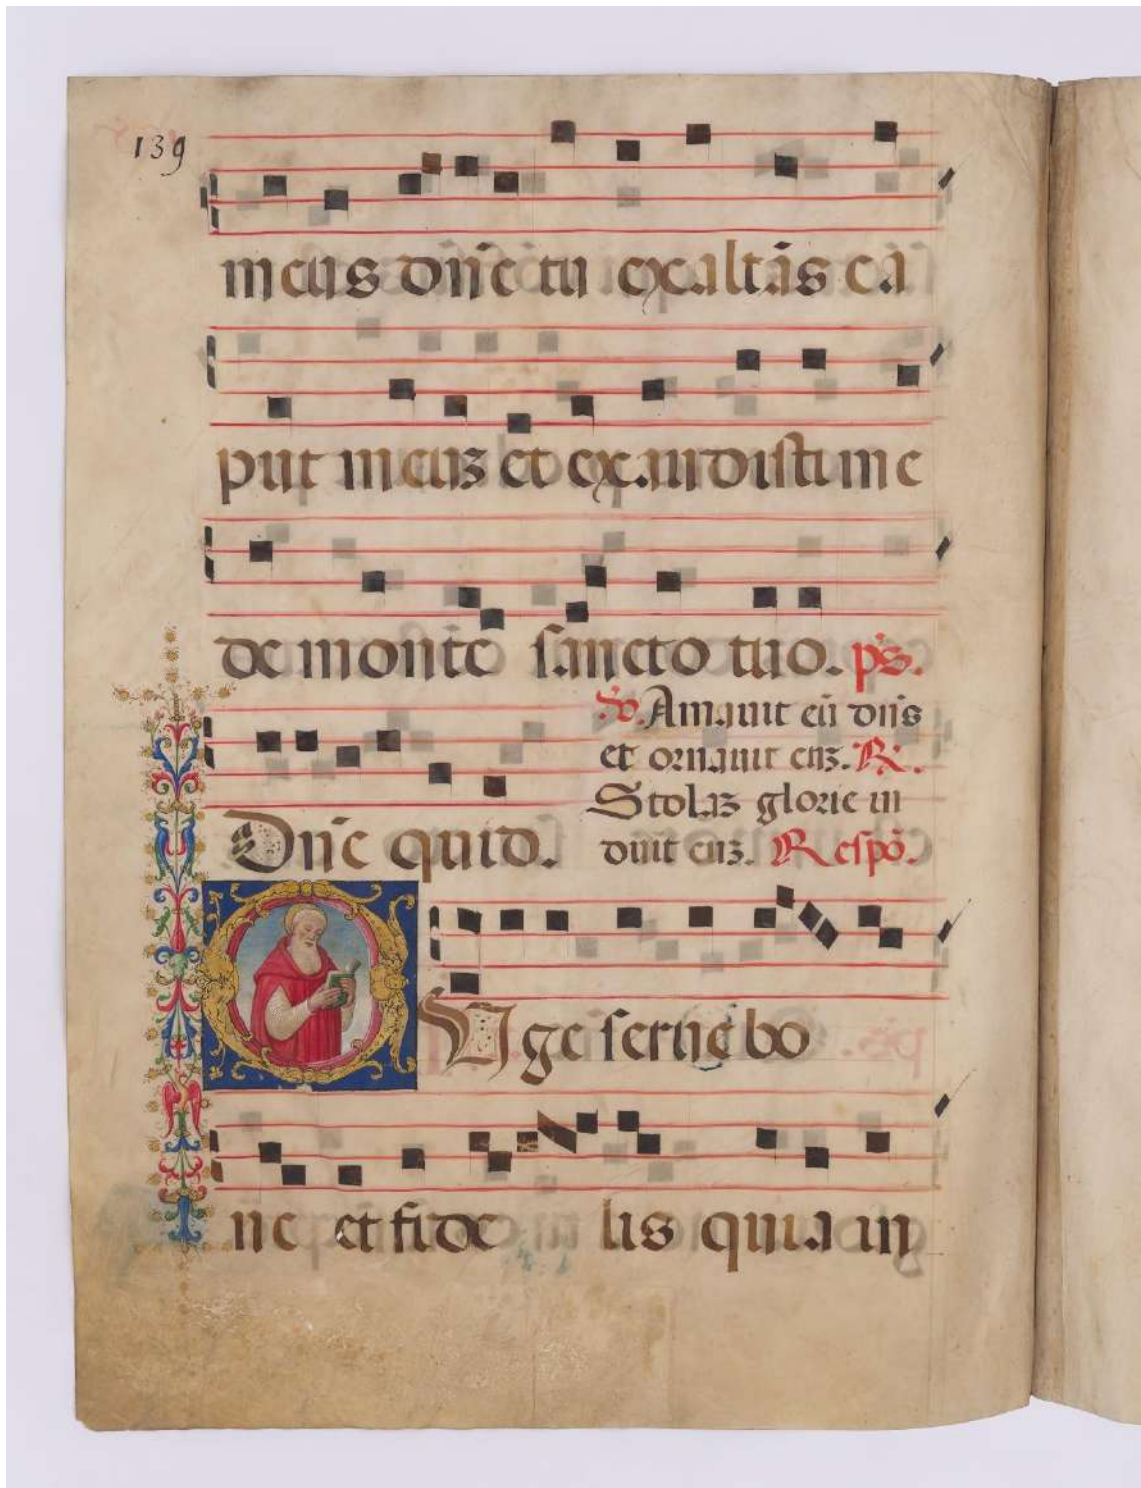 139
meus dn̄e tu exaltās ca
put meuz et exaudisti me
de monte sancto tuo. ps.
℣. Amauit eū dn̄s
et ornauit euz. ℟.
Stolaz glorie in
Dn̄e quid.
duit euz. Respō.
Uge serue bo
ne et fide lis quia in